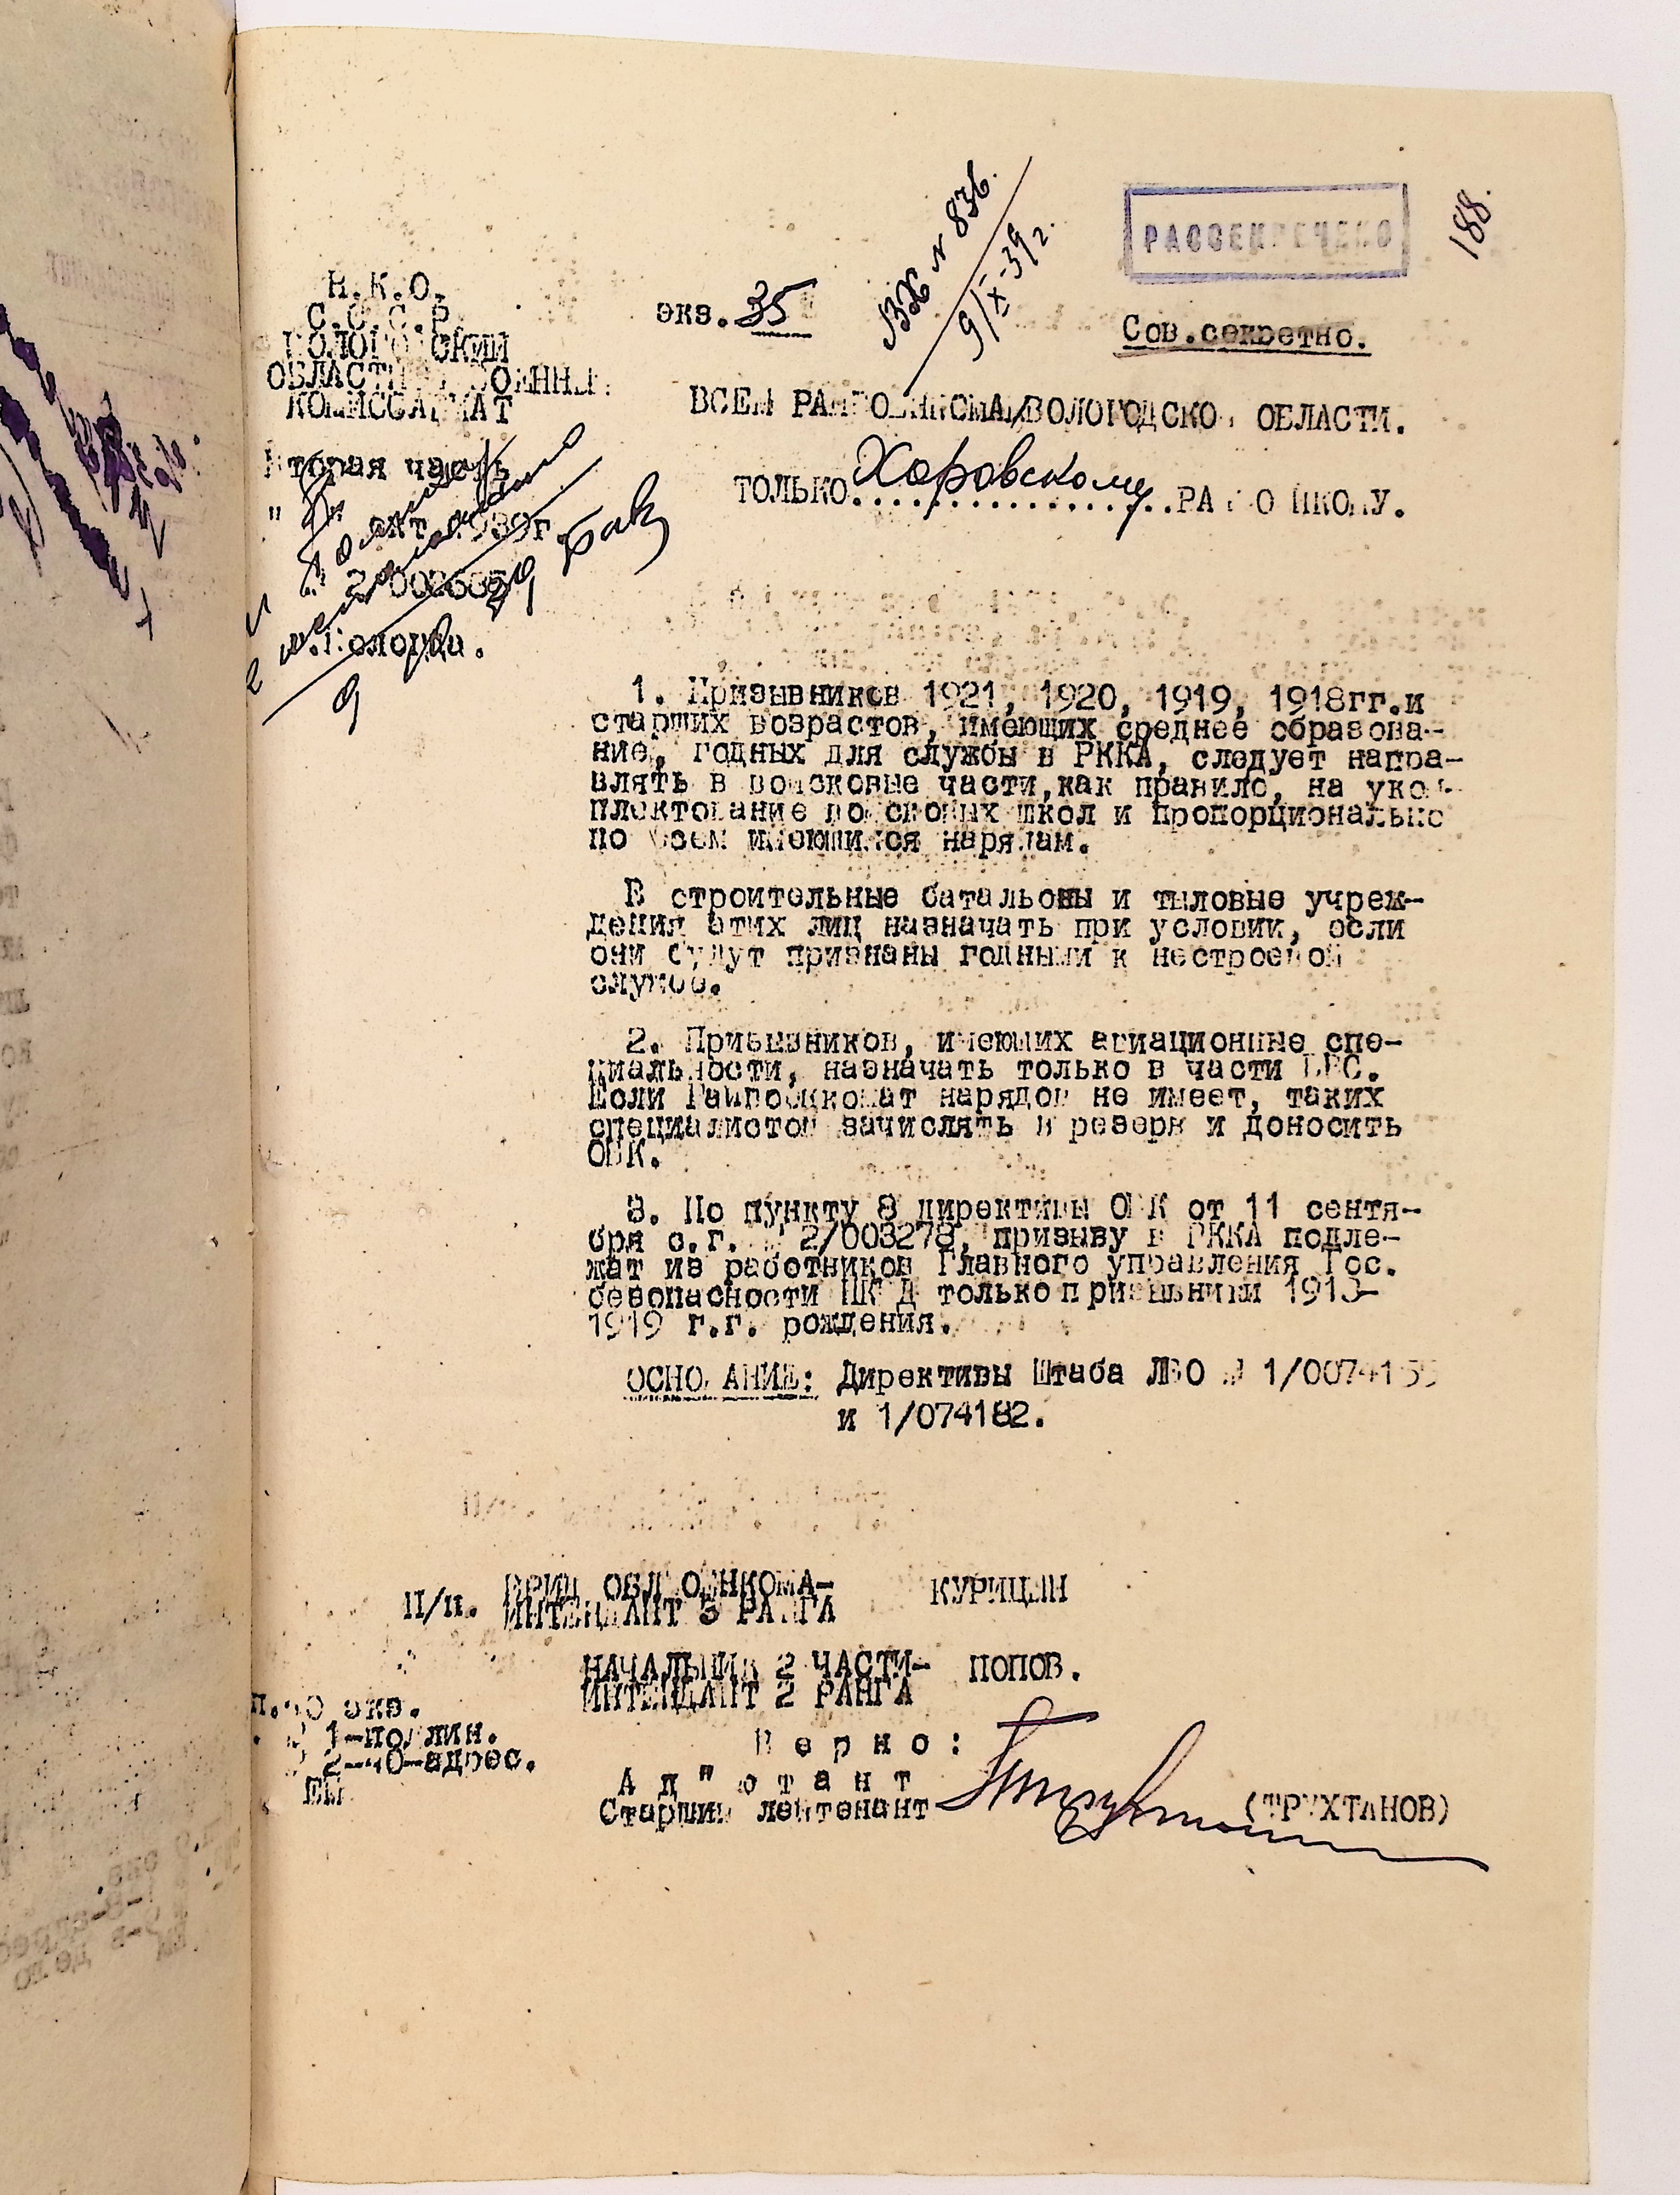 188.
РАССЕКРЕЧЕНО
Сов.секретно.
ВХ N 836.
9/X-39г.
экз. 35
Н.К.О.
С.С.С.Р.
ВОЛОГОДСКИЙ
ОБЛАСТНОЙ ВОЕННЫЙ
КОМИССАРИАТ
Вторая часть
окт. 1939г.
г.Вологда.
ВСЕМ РАЙВОЕНКОМАМ ВОЛОГОДСКОЙ ОБЛАСТИ.
ТОЛЬКО Харовскому РАЙВОЕНКОМУ.
1. Призывников 1921, 1920, 1919, 1918гг.и
старших возрастов, имеющих среднее образова-
ние, годных для службы в РККА, следует напра-
влять в войсковые части,как правило, на уком-
плектование войсковых школ и пропорционально
по всем имеющимся нарядам.
В строительные батальоны и тыловые учреж-
дения этих лиц назначать при условии, если
они будут признаны годными к нестроевой
службе.
2. Призывников, имеющих авиационные спе-
циальности, назначать только в части ВВС.
Если Райвоенкомат нарядов не имеет, таких
специалистов зачислять в резерв и доносить
ОВК.
3. По пункту 8 директивы ОВК от 11 сентя-
бря с.г. № 2/003278, призыву в РККА подле-
жат из работников Главного управления Гос.
безопасности НКВД только призывники 1918-
1919 г.г. рождения.
ОСНОВАНИЕ: Директивы Штаба ЛВО №
и 1/074182.
П/п. ВРИД ОБЛВОЕНКОМА- КУРИЦЫН
ИНТЕНДАНТ 3 РАНГА
НАЧАЛЬНИК 2 ЧАСТИ- ПОПОВ.
ИНТЕНДАНТ 2 РАНГА
экз.
1-подлин.
2-40-адрес.
Верно:
Ад"ютант
Старший лейтенант (ТРУХТАНОВ)